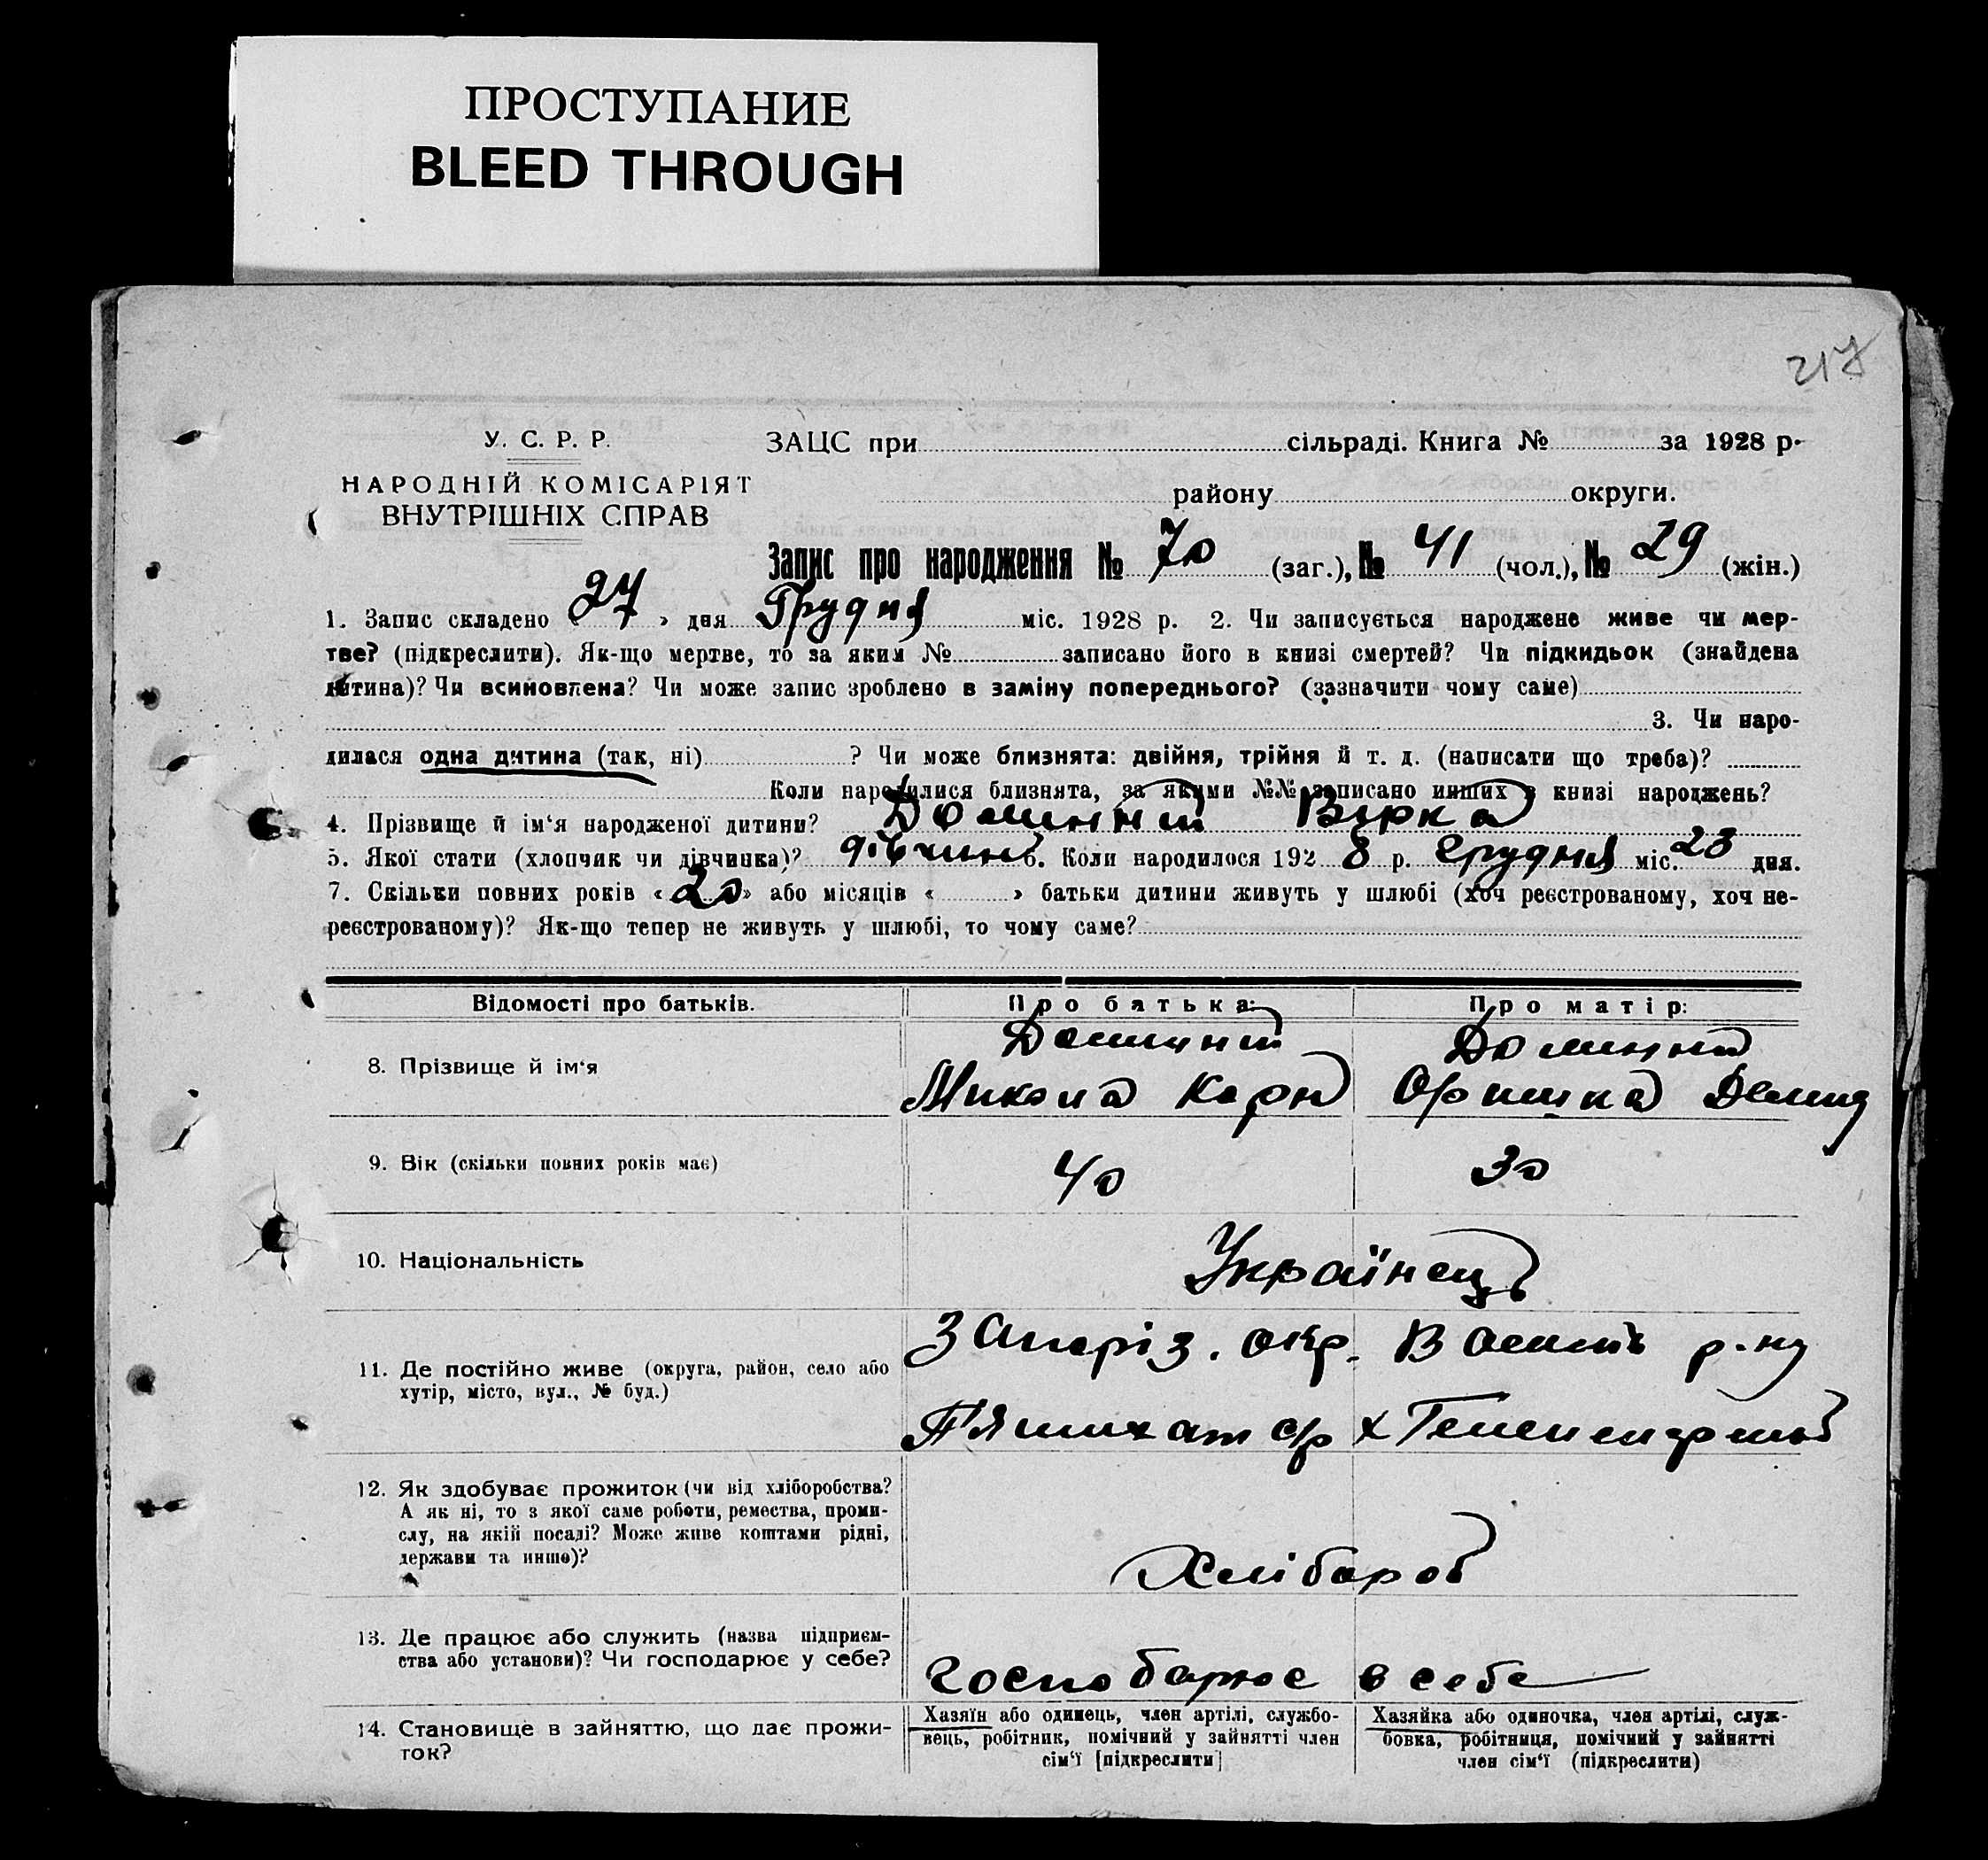 ПРОСТУПАНИЕ
BLEED THROUGH
217
У. С. Р. Р.
НАРОДНІЙ КОМІСАРІЯТ
ВНУТРІШНІХ СПРАВ
ЗАЦС при сільраді. Книга № за 1928 р.
району округи.
Запис про народження № 70 (заг.), № 41 (чол.), № 29 (жін.)
1. Запис складено 27 » дня Грудня міс. 1928 р. 2. Чи записується народжене живе чи мер-
тве? (підкреслити). Як-що мертве, то за яким № записано його в книзі смертей? Чи підкидьок (знайдена
дитина)? Чи всиновлена? Чи може запис зроблено в заміну попереднього? (зазначити чому саме)
3. Чи наро-
дилася одна дитина (так, ні) ? Чи може близнята: двійня, трійня й т. д. (написати що треба)?
Коли народилися близнята, за якими №№ записано инших в книзі народжень?
4. Прізвище й ім‘я народженої дитини? Вірка
5. Якої стати (хлопчик чи дівчинка)? дівчин 6. Коли народилося 192 8 р. Грудня міс. 23 дня.
7. Скільки повних років « 20 » або місяців « » батьки дитини живуть у шлюбі (хоч реєстрованому, хоч не-
реєстрованому)? Як-що тепер не живуть у шлюбі, то чому саме?
Відомості про батьків. Про батька: Про матір:
8. Прізвище й ім‘я
Микола Карп Оришка Демид
9. Вік (скільки повних років має) 40 30
10. Національність Українець
11. Де постійно живе (округа, район, село або
хутір, місто, вул., № буд.)
Запоріз. окр. Василь р-ну
П'ятихат с/р х
12. Як здобуває прожиток (чи від хліборобства?
А як ні, то з якої саме роботи, ремества, проми-
слу, на якій посаді? Може живе коштами рідні,
держави та инше)?
Хлібороб
13. Де працює або служить (назва підприєм-
ства або установи)? Чи господарює у себе?
господарює в себе
14. Становище в зайняттю, що дає прожи-
ток?
Хазяїн або одинець, член артілі, службо-
вець, робітник, помічний у зайнятті член
сім‘ї [підкреслити]
Хазяйка або одиночка, член артілі, служ-
бовка, робітниця, помічний у зайнятті
член сім‘ї (підкреслити)